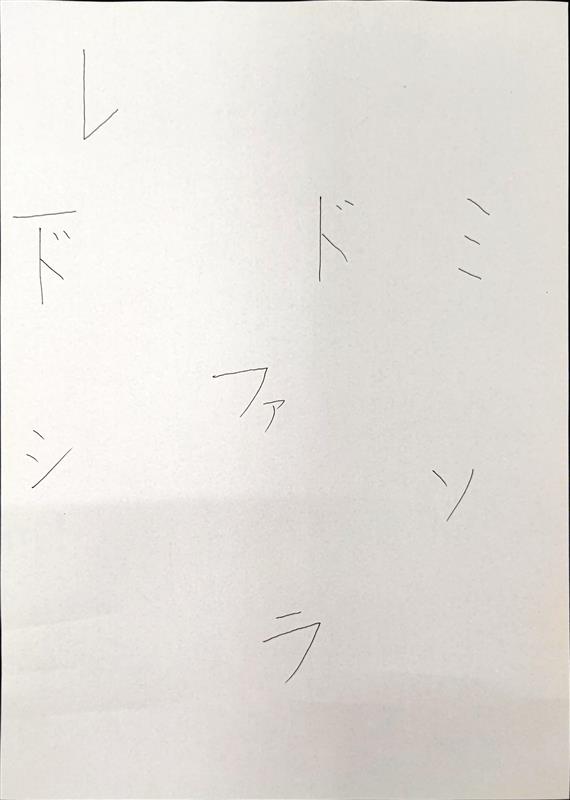 レ
ド
ド
ミ
ファ
シ
ソ
ラ